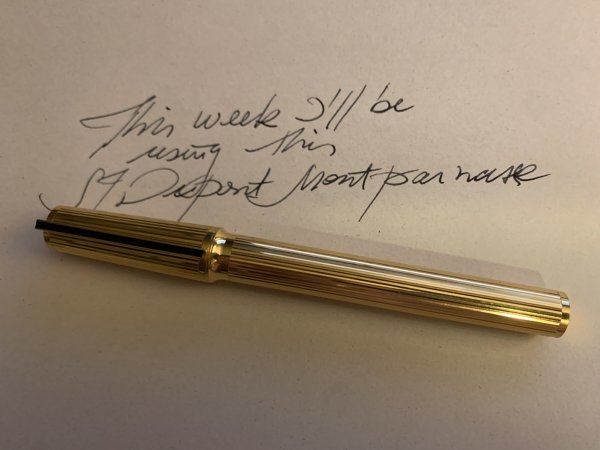 This week I'll be
using this
ST Dupont Montparnasse